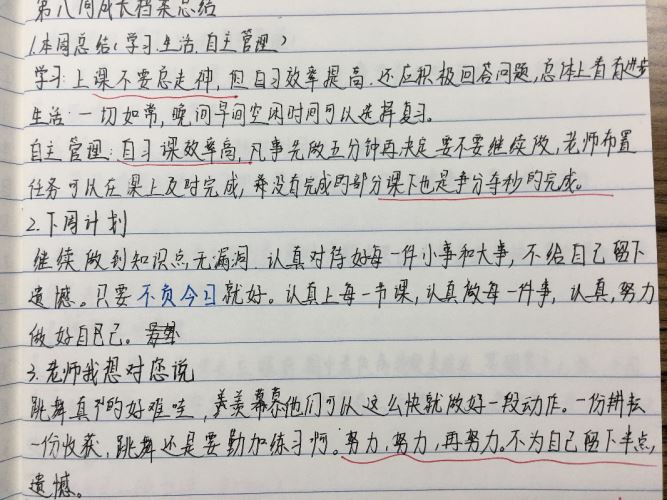 第八周成长档案总结
1.本周总结(学习、生活、自主管理)
学习:上课不要总走神,但自习效率提高.还应积极回答问题,总体上看有进步
生活:一切如常,晚间早间空闲时间可以选择复习。
自主管理:自习课效率高,凡事先做五分钟再决定要不要继续做,老师布置
任务可以在课上及时完成,没有完成的部分课下也是争分夺秒的完成。
2.下周计划
继续做到知识点无漏洞.认真对待好每一件小事和大事,不给自己留下
遗憾。只要不负今日就好。认真上每一节课,认真做每一件事,认真,努力
做好自己。
3.老师我想对您说
跳舞真的好难哇,羡慕他们可以这么快就做好一段动作。一份耕耘
一份收获,跳舞还是要勤加练习啊。努力,努力,再努力。不为自己留下半点
遗憾。